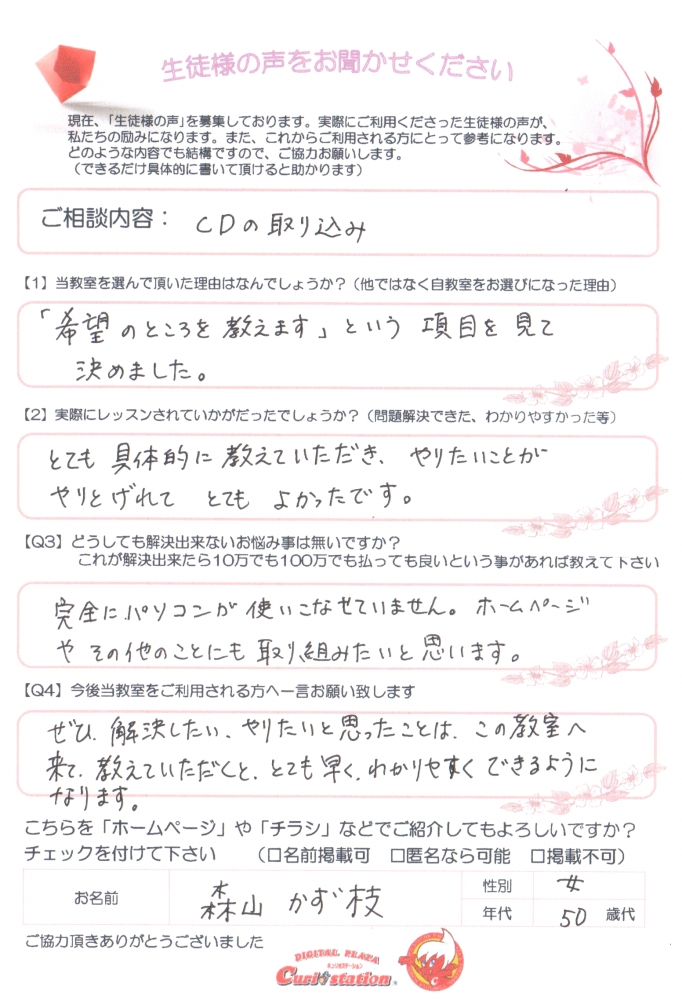 生徒様の声をお聞かせください
現在、「生徒様の声」を募集しております。実際にご利用くださった生徒様の声が、
私たちの励みになります。また、これからご利用される方にとって参考になります。
どのような内容でも結構ですので、ご協力お願いします。
（できるだけ具体的に書いて頂けると助かります）
ご相談内容： CDの取り込み
【1】当教室を選んで頂いた理由はなんでしょうか？（他ではなく自教室をお選びになった理由）
「希望のところを教えます」という 項目を見て
決めました。
【2】実際にレッスンされていかがだったでしょうか？（問題解決できた、わかりやすかった等）
とても具体的に教えていただき、やりたいことが
やりとげれて とても よかったです。
【Q3】どうしても解決出来ないお悩み事は無いですか？
これが解決出来たら10万でも100万でも払っても良いという事があれば教えて下さい
完全にパソコンが使いこなせていません。ホームページ
や その他のことにも取り組みたいと思います。
【Q4】今後当教室をご利用される方へ一言お願い致します
ぜひ、解決したい、やりたいと思ったことは、この教室へ
来て、教えていただくと、とても早く、わかりやすく できるように
なります。
こちらを「ホームページ」や「チラシ」などでご紹介してもよろしいですか？
チェックを付けて下さい （□名前掲載可 □匿名なら可能 □掲載不可）
お名前 森山 かず枝 性別 女
年代 50 歳代
ご協力頂きありがとうございました
DIGITAL PLAZA
キュリオステーション
Curio station